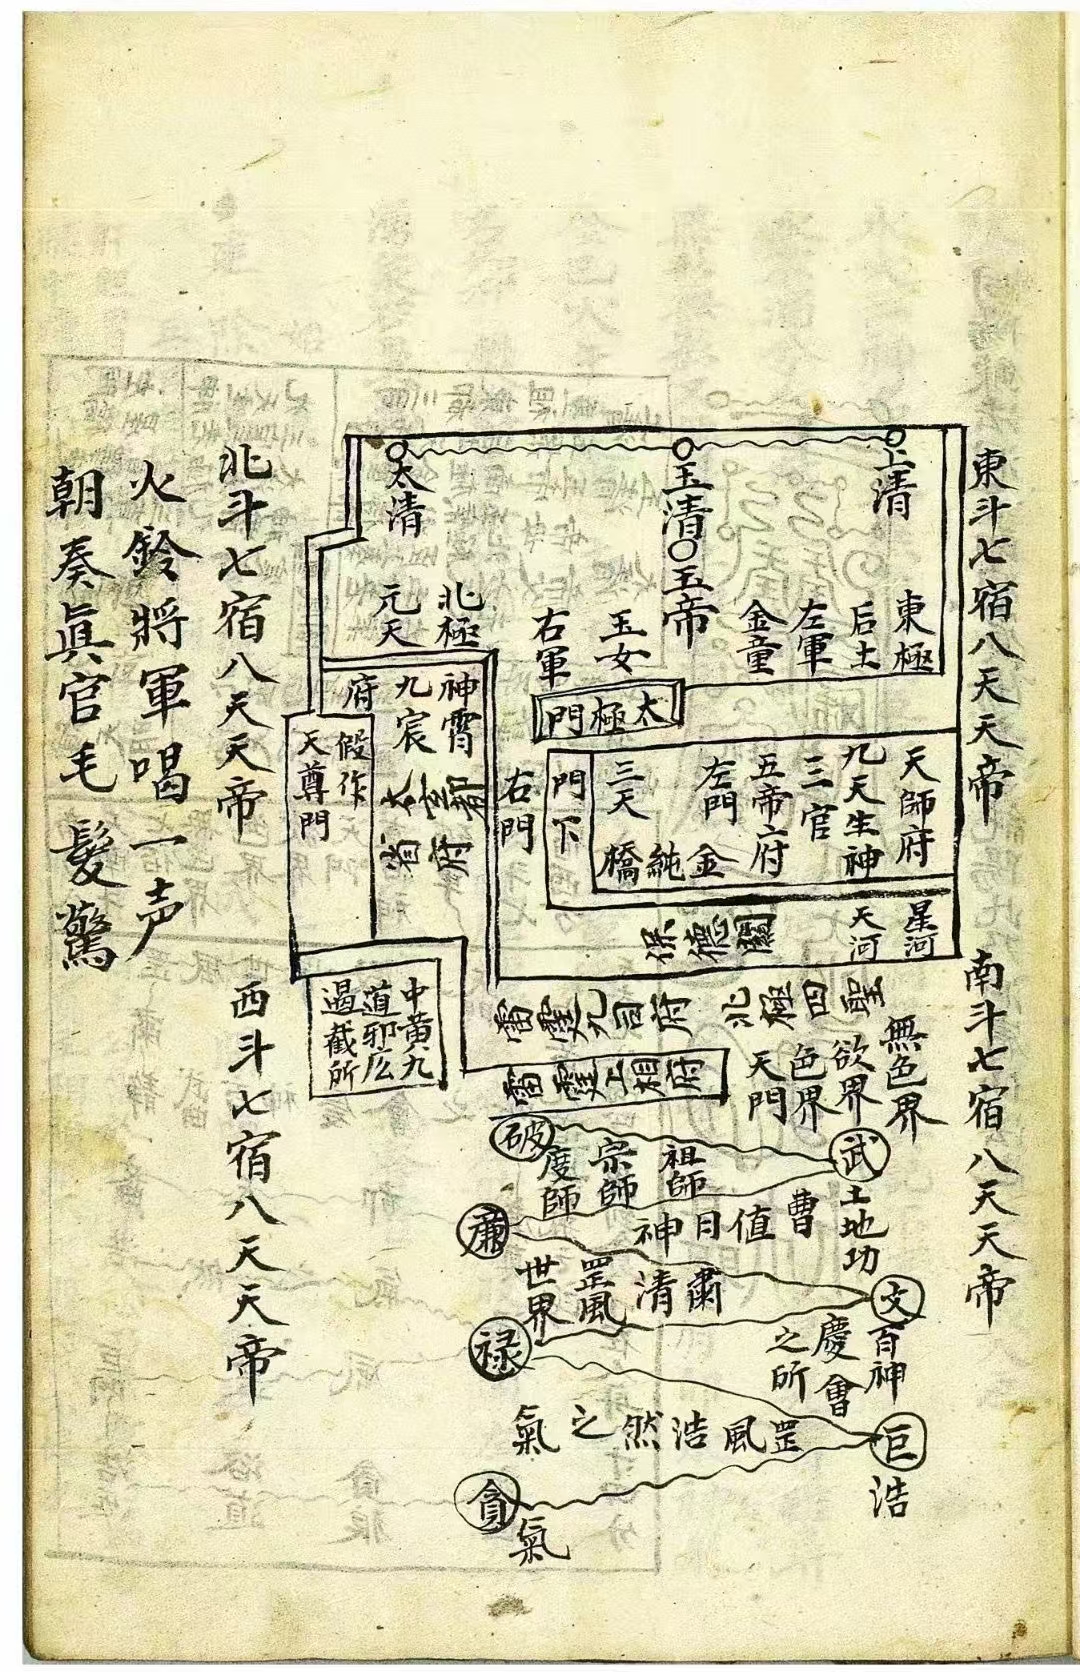 東斗七宿八天天帝
南斗七宿八天天帝
上清
玉清
玉帝
太清
東極
后土
左軍
金童
玉女
右軍
北極
元天
太極門
天師府
九天生神
三官
五帝府
左門
三天
金純橋
門下
右門
星河
天河
保德關
神霄
九宸
府
省府
假作
天尊門
中黃九
道邪広
過截所
北極四聖
雷霆九司府
雷霆上相府
無色界
欲界
色界
天門
破
武
祖師
宗師
度師
土地功
曹值日神
廉
文
清肅
罡風
世界
祿
百神
慶會
之所
巨
罡風浩然之氣
浩
貪
氣
北斗七宿八天天帝
西斗七宿八天天帝
火鈴將軍喝一声
朝奏眞官毛髮驚